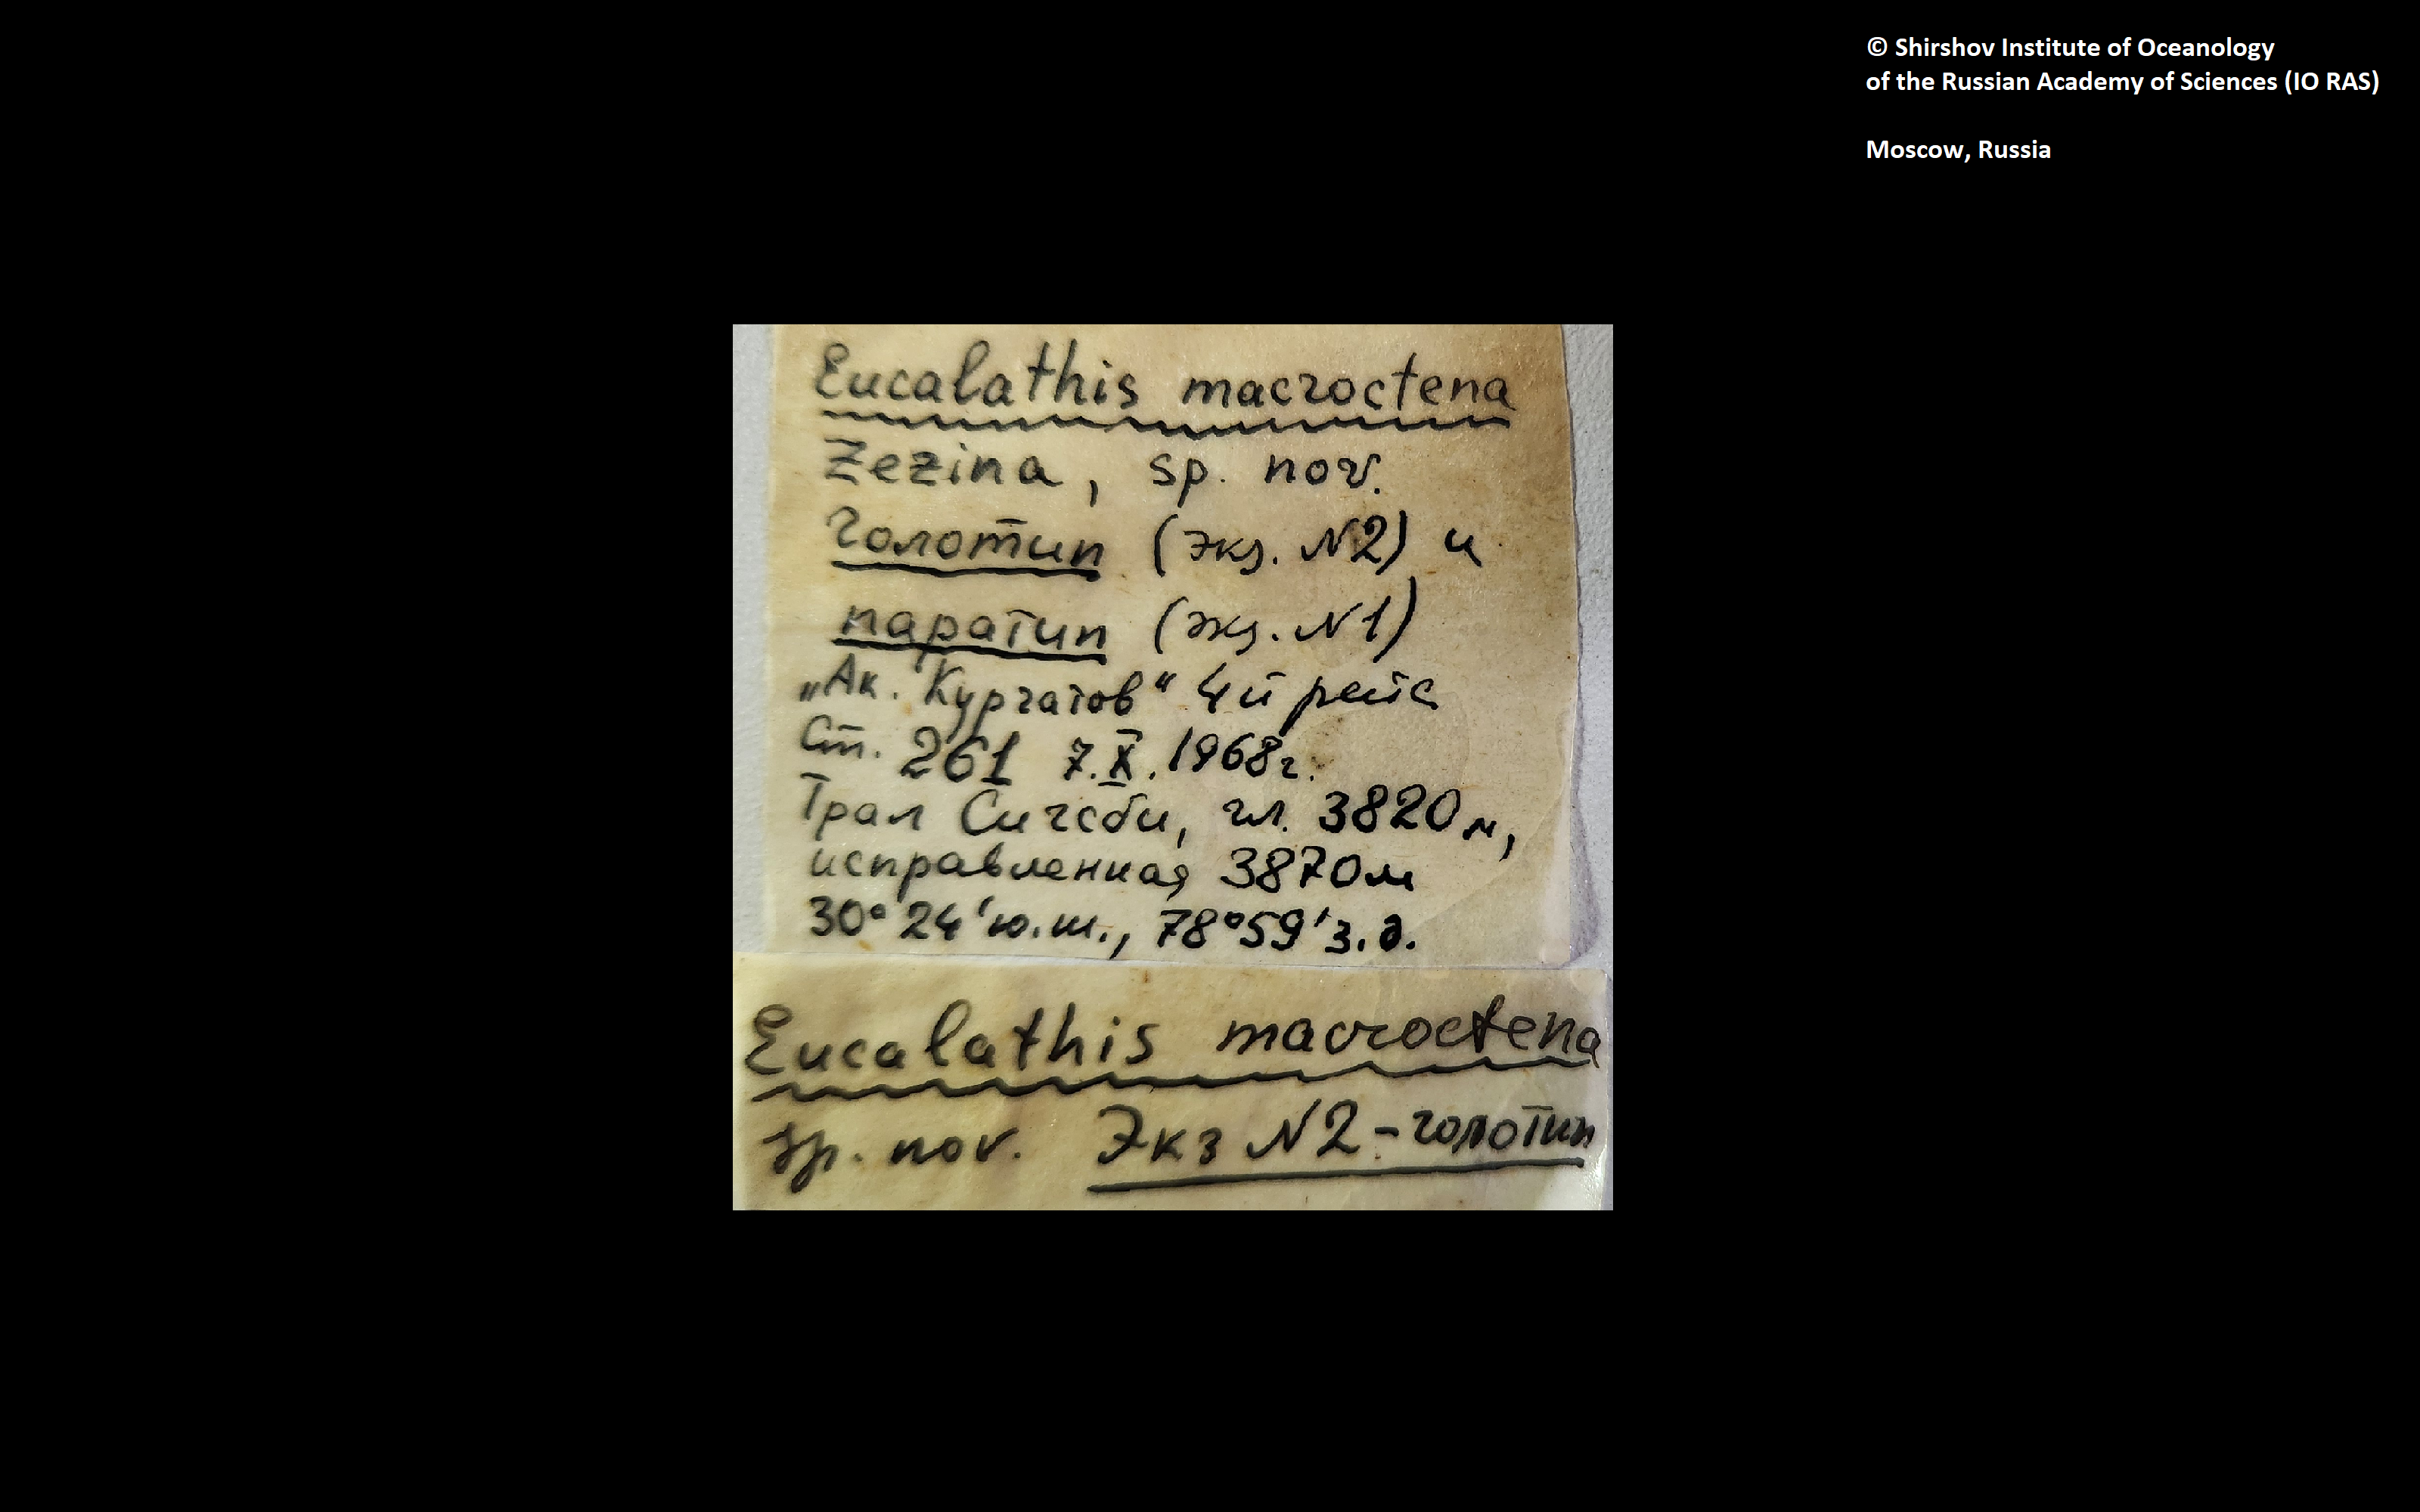 © Shirshov Institute of Oceanology
of the Russian Academy of Sciences (IO RAS)
Moscow, Russia
Eucalathis macroctena
Zezina, sp. nov.
голотип (экз. N2) и
паратип (экз. N1)
„Ак. Курчатов“ 4й рейс
Ст. 261 7.X.1968г.
Трал Сигсби, гл. 3820м,
исправленная 3870м
30°24'ю.ш., 78°59'з.д.
Eucalathis macroctena
sp. nov. Экз N2-голотип